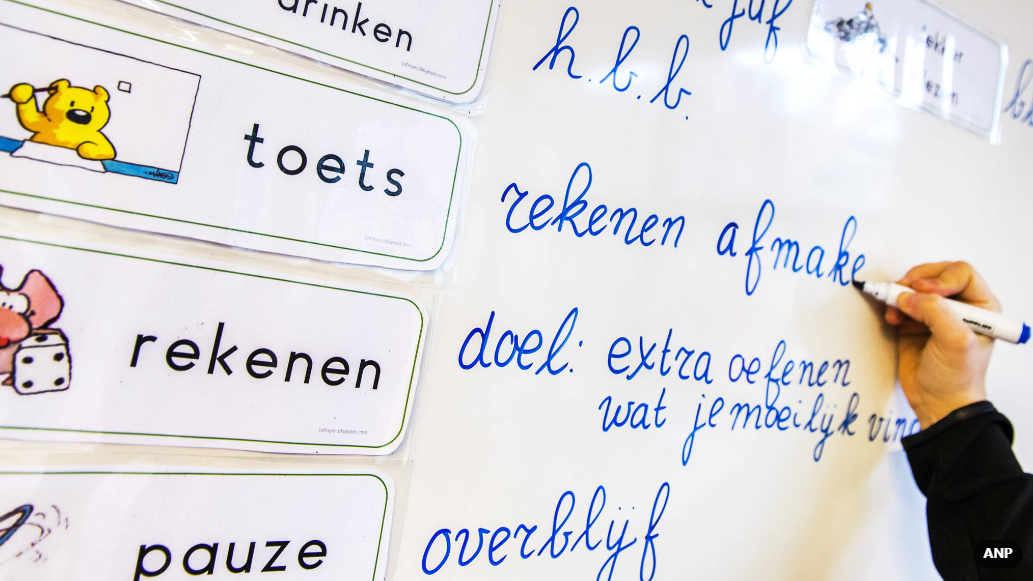 drinken
juf
h.b.b.
lekker
lezen
toets
rekenen afmake
rekenen
doel: extra oefenen
wat je moeilijk vind
pauze
overblijf
ANP